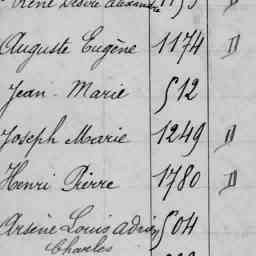 René Désiré Alexandre 1193
Auguste Eugène 1174 D
Jean-Marie 512
Joseph Marie 1249 D
Henri Pierre 1780 D
Arsène Louis Adrien 504
Charles